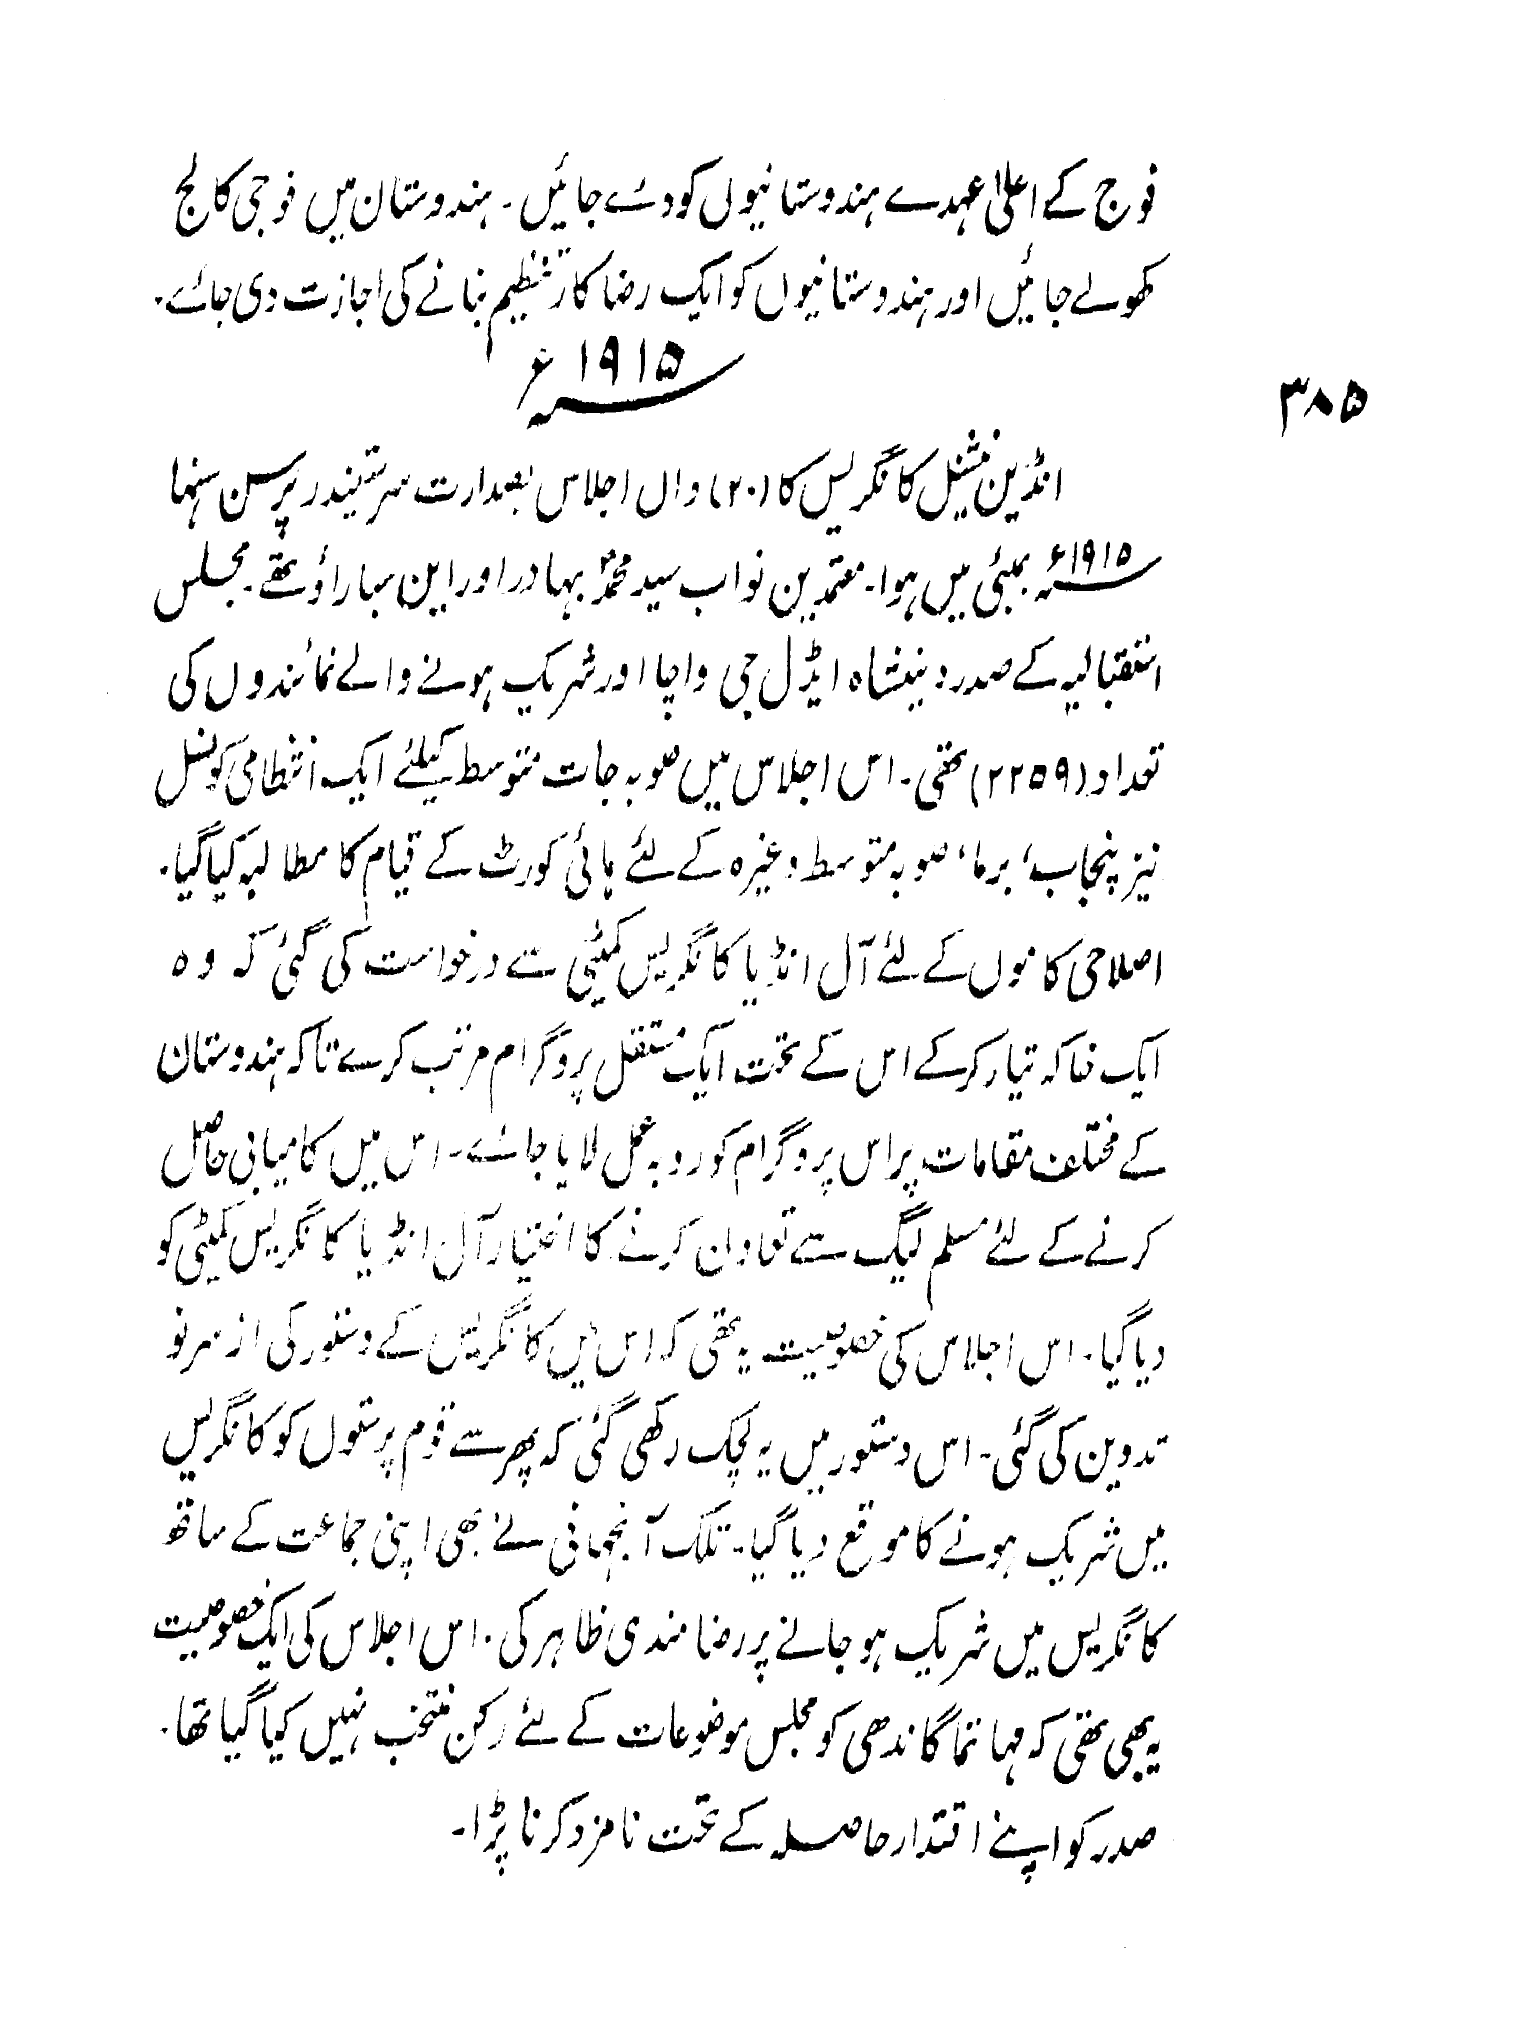 فوج کے اعلیٰ عہدے ہندوستانیوں کو دئے جائیں۔ ہندوستان میں فوجی کالج
کھولے جائیں اور ہندوستانیوں کو ایک رضا کار تنظیم بنانے کی اجازت دی جائے۔
۱۹۱۵ء
۳۸۵
انڈین نیشنل کانگریس کا (۲۰) واں اجلاس بصدارت سر ستیندر پرسن سنہا
۱۹۱۵ء بمبئی میں ہوا۔ معتمدین نواب سید محمدؐ بہادر اور این سباراؤ تھے۔ مجلس
استقبالیہ کے صدر دینشاہ ایڈل جی واچا اور شریک ہونے والے نمائندوں کی
تعداد (۲۲۵۹) تھی۔ اس اجلاس میں صوبہ جات متوسط کیلئے ایک انتظامی کونسل
نیز پنجاب، برما، صوبہ متوسط وغیرہ کے لئے ہائی کورٹ کے قیام کا مطالبہ کیا گیا۔
اصلاحی کاموں کے لئے آل انڈیا کانگریس کمیٹی سے درخواست کی گئی کہ وہ
ایک خاکہ تیار کرکے اس کے تحت ایک مستقل پروگرام مرتب کرے تاکہ ہندوستان
کے مختلف مقامات پر اس پروگرام کو روبہ عمل لایا جائے۔ اس میں کامیابی حاصل
کرنے کے لئے مسلم لیگ سے تعاون کرنے کا اختیار آل انڈیا کانگریس کمیٹی کو
دیا گیا۔ اس اجلاس کی خصوصیت یہ تھی کہ اس میں کانگریس کے دستور کی از سر نو
تدوین کی گئی۔ اس دستور میں یہ لچک رکھی گئی کہ پھر سے قوم پرستوں کو کانگریس
میں شریک ہونے کا موقع دیا گیا۔ تلک آنجہانی نے بھی اپنی جماعت کے ساتھ
کانگریس میں شریک ہو جانے پر رضا مندی ظاہر کی۔ اس اجلاس کی ایک خصوصیت
یہ بھی تھی کہ مہاتما گاندھی کو مجلس موضوعات کے لئے رکن منتخب نہیں کیا گیا تھا۔
صدر کو اپنے اقتدار حاصلہ کے تحت نامزد کرنا پڑا۔